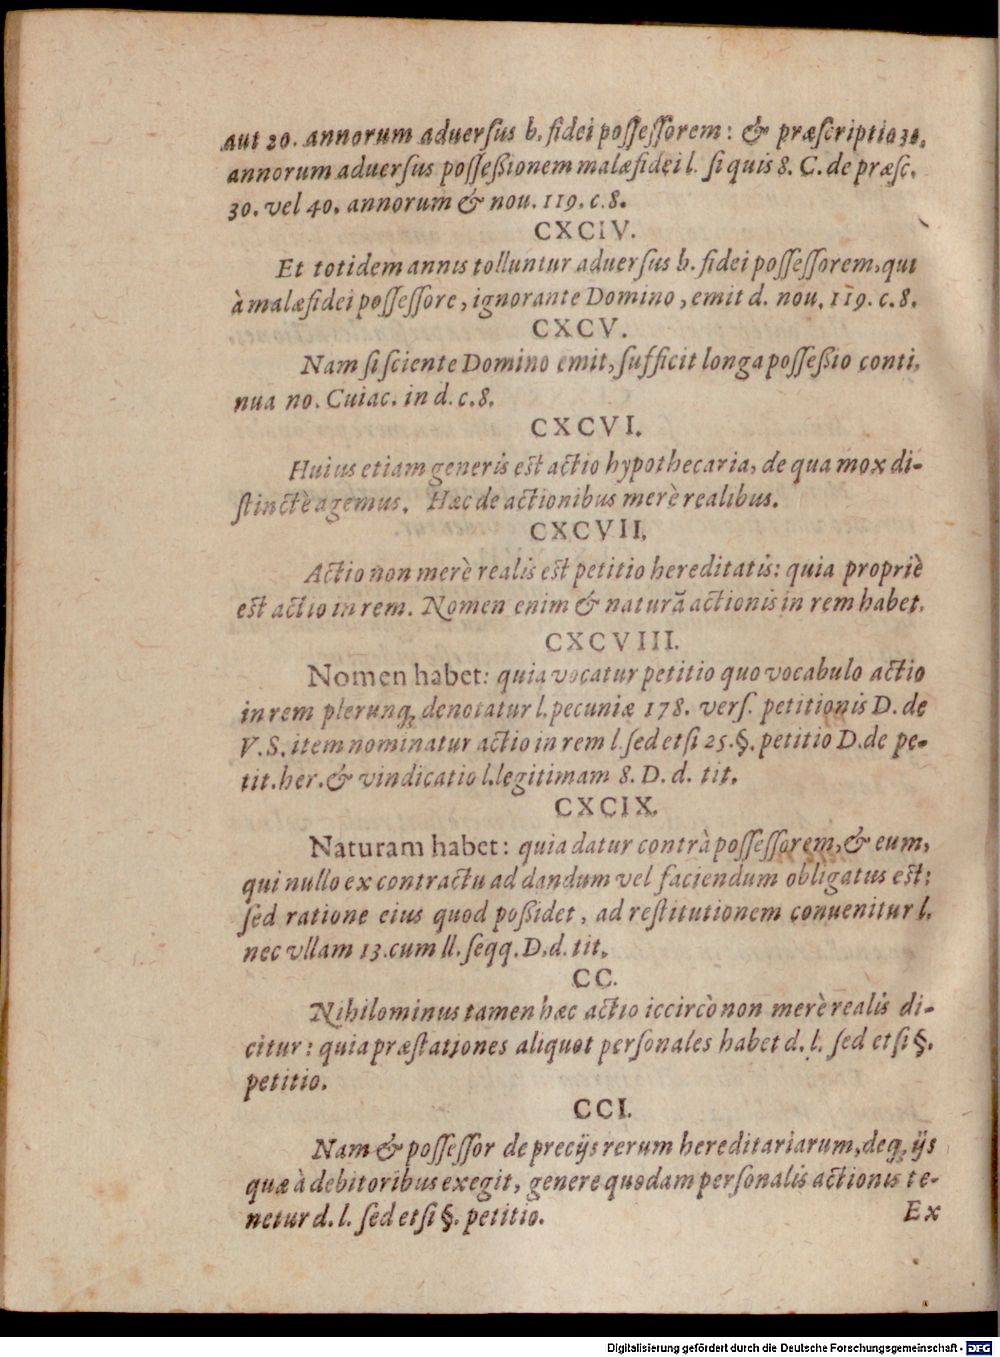 aut 20. annorum aduersus b. fidei possessorem: & præscriptio 30.
annorum aduersus possessionem malæ fidei l. si quis 8. C. de præsc.
30. vel 40. annorum & nou. 119. c. 8.
CXCIV.
Et totidem annis tolluntur aduersus b. fidei possessorem, qui
à malæ fidei possessore, ignorante Domino, emit d. nou. 119. c. 8.
CXCV.
Nam si sciente Domino emit, sufficit longa possessio conti,
nua no. Cuiac. in d. c. 8.
CXCVI.
Huius etiam generis est actio hypothecaria, de qua mox di-
stinctè agemus. Hæc de actionibus merè realibus.
CXCVII.
Actio non merè realis est petitio hereditatis: quia propriè
est actio in rem. Nomen enim & naturā actionis in rem habet.
CXCVIII.
Nomen habet: quia vocatur petitio quo vocabulo actio
in rem plerunq; denotatur l. pecuniæ 178. vers. petitionis D. de
V. S. item nominatur actio in rem l. sed etsi 25. §. petitio D. de pe-
tit. her. & vindicatio l. legitimam 8. D. d. tit.
CXCIX.
Naturam habet: quia datur contrà possessorem, & eum,
qui nullo ex contractu ad dandum vel faciendum obligatus est:
sed ratione eius quod possidet, ad restitutionem conuenitur l.
nec vllam 13. cum ll. seqq. D. d. tit.
CC.
Nihilominus tamen hæc actio iccircò non merè realis di-
citur: quia præstationes aliquot personales habet d. l. sed etsi §.
petitio.
CCI.
Nam & possessor de precijs rerum hereditariarum, deq; ijs
quæ à debitoribus exegit, genere quodam personalis actionis te-
netur d. l. sed etsi §. petitio.
Ex
Digitalisierung gefördert durch die Deutsche Forschungsgemeinschaft - DFG